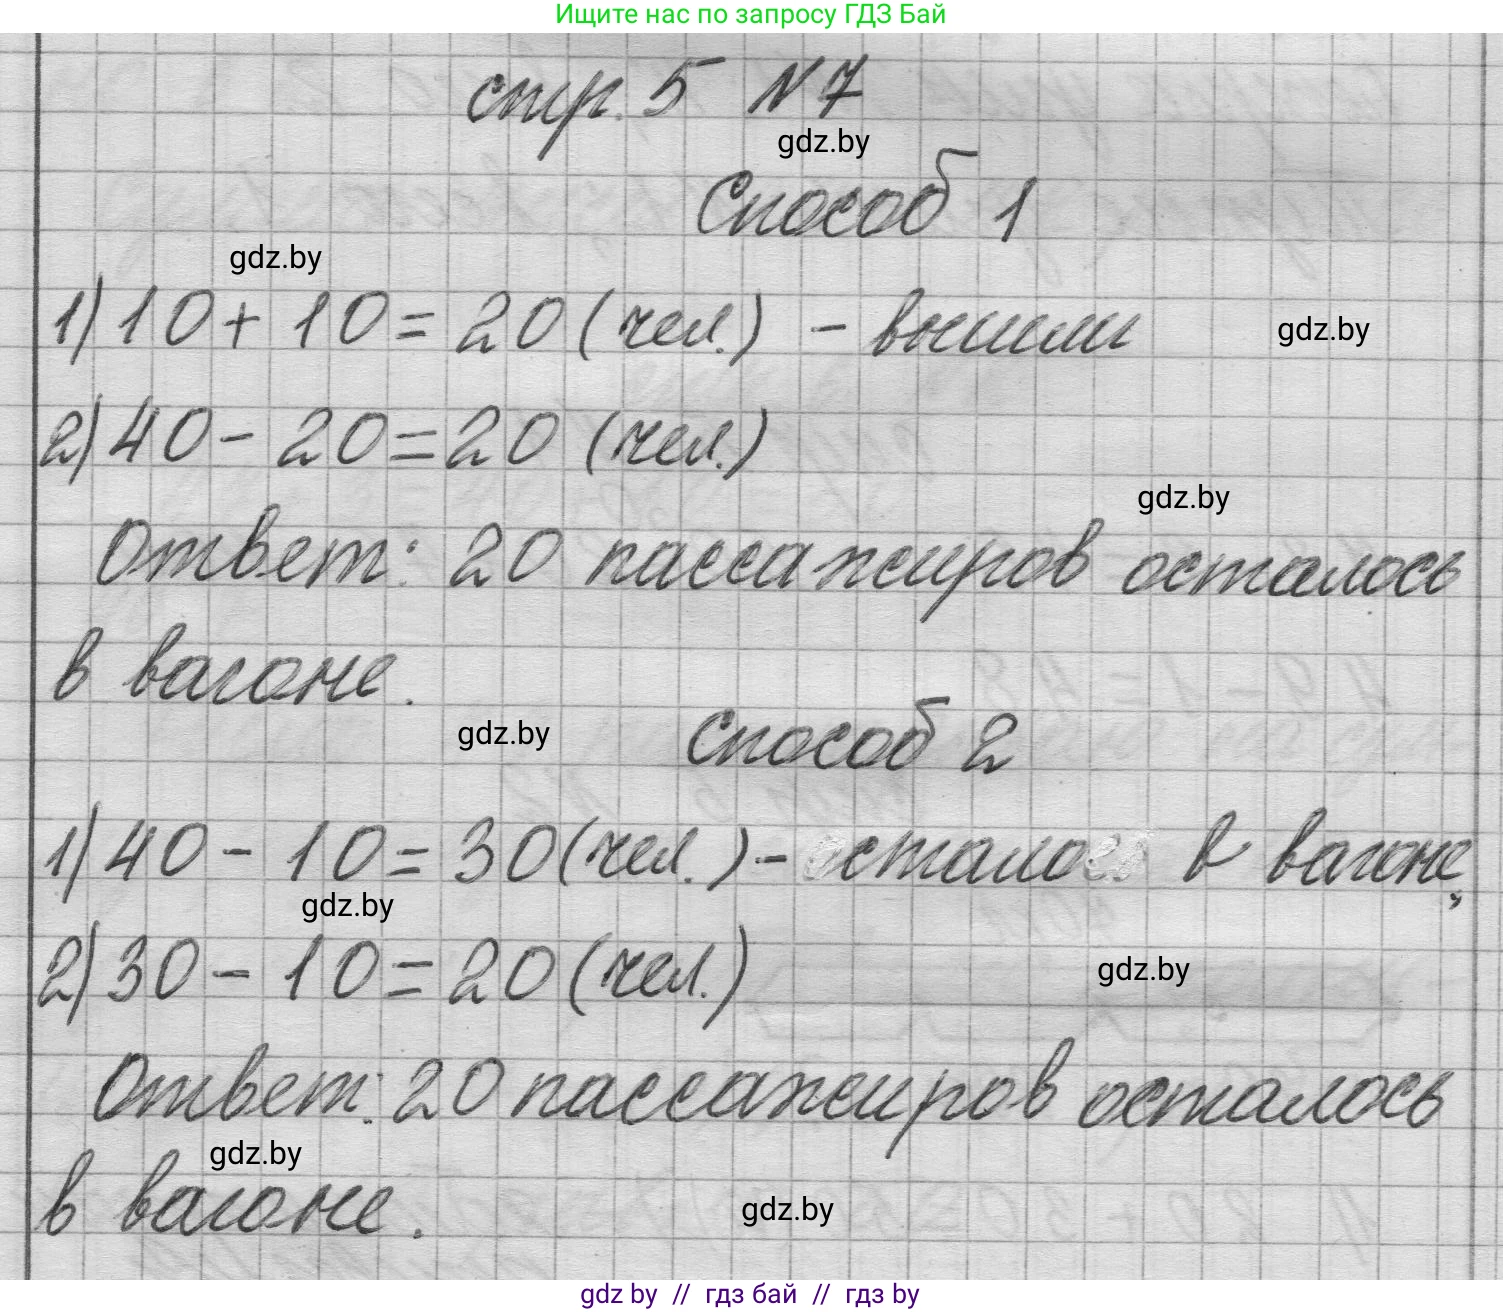 Ищите нас по запросу ГДЗ Бай
стр. 5 N 7
gdz.by
Способ 1
gdz.by
1) 10 + 10 = 20 (чел.) - вышли
gdz.by
2) 40 - 20 = 20 (чел.)
gdz.by
Ответ: 20 пассажиров осталось
в вагоне.
gdz.by
Способ 2
1) 40 - 10 = 30 (чел.) - осталось в вагоне,
gdz.by
2) 30 - 10 = 20 (чел.)
gdz.by
Ответ: 20 пассажиров осталось
gdz.by
в вагоне.
gdz.by
gdz by // гдз бай // гдз by